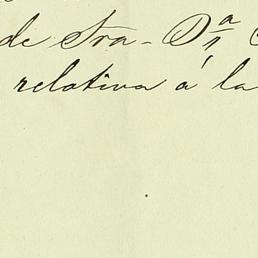 de Sra - Dª
relativa á la